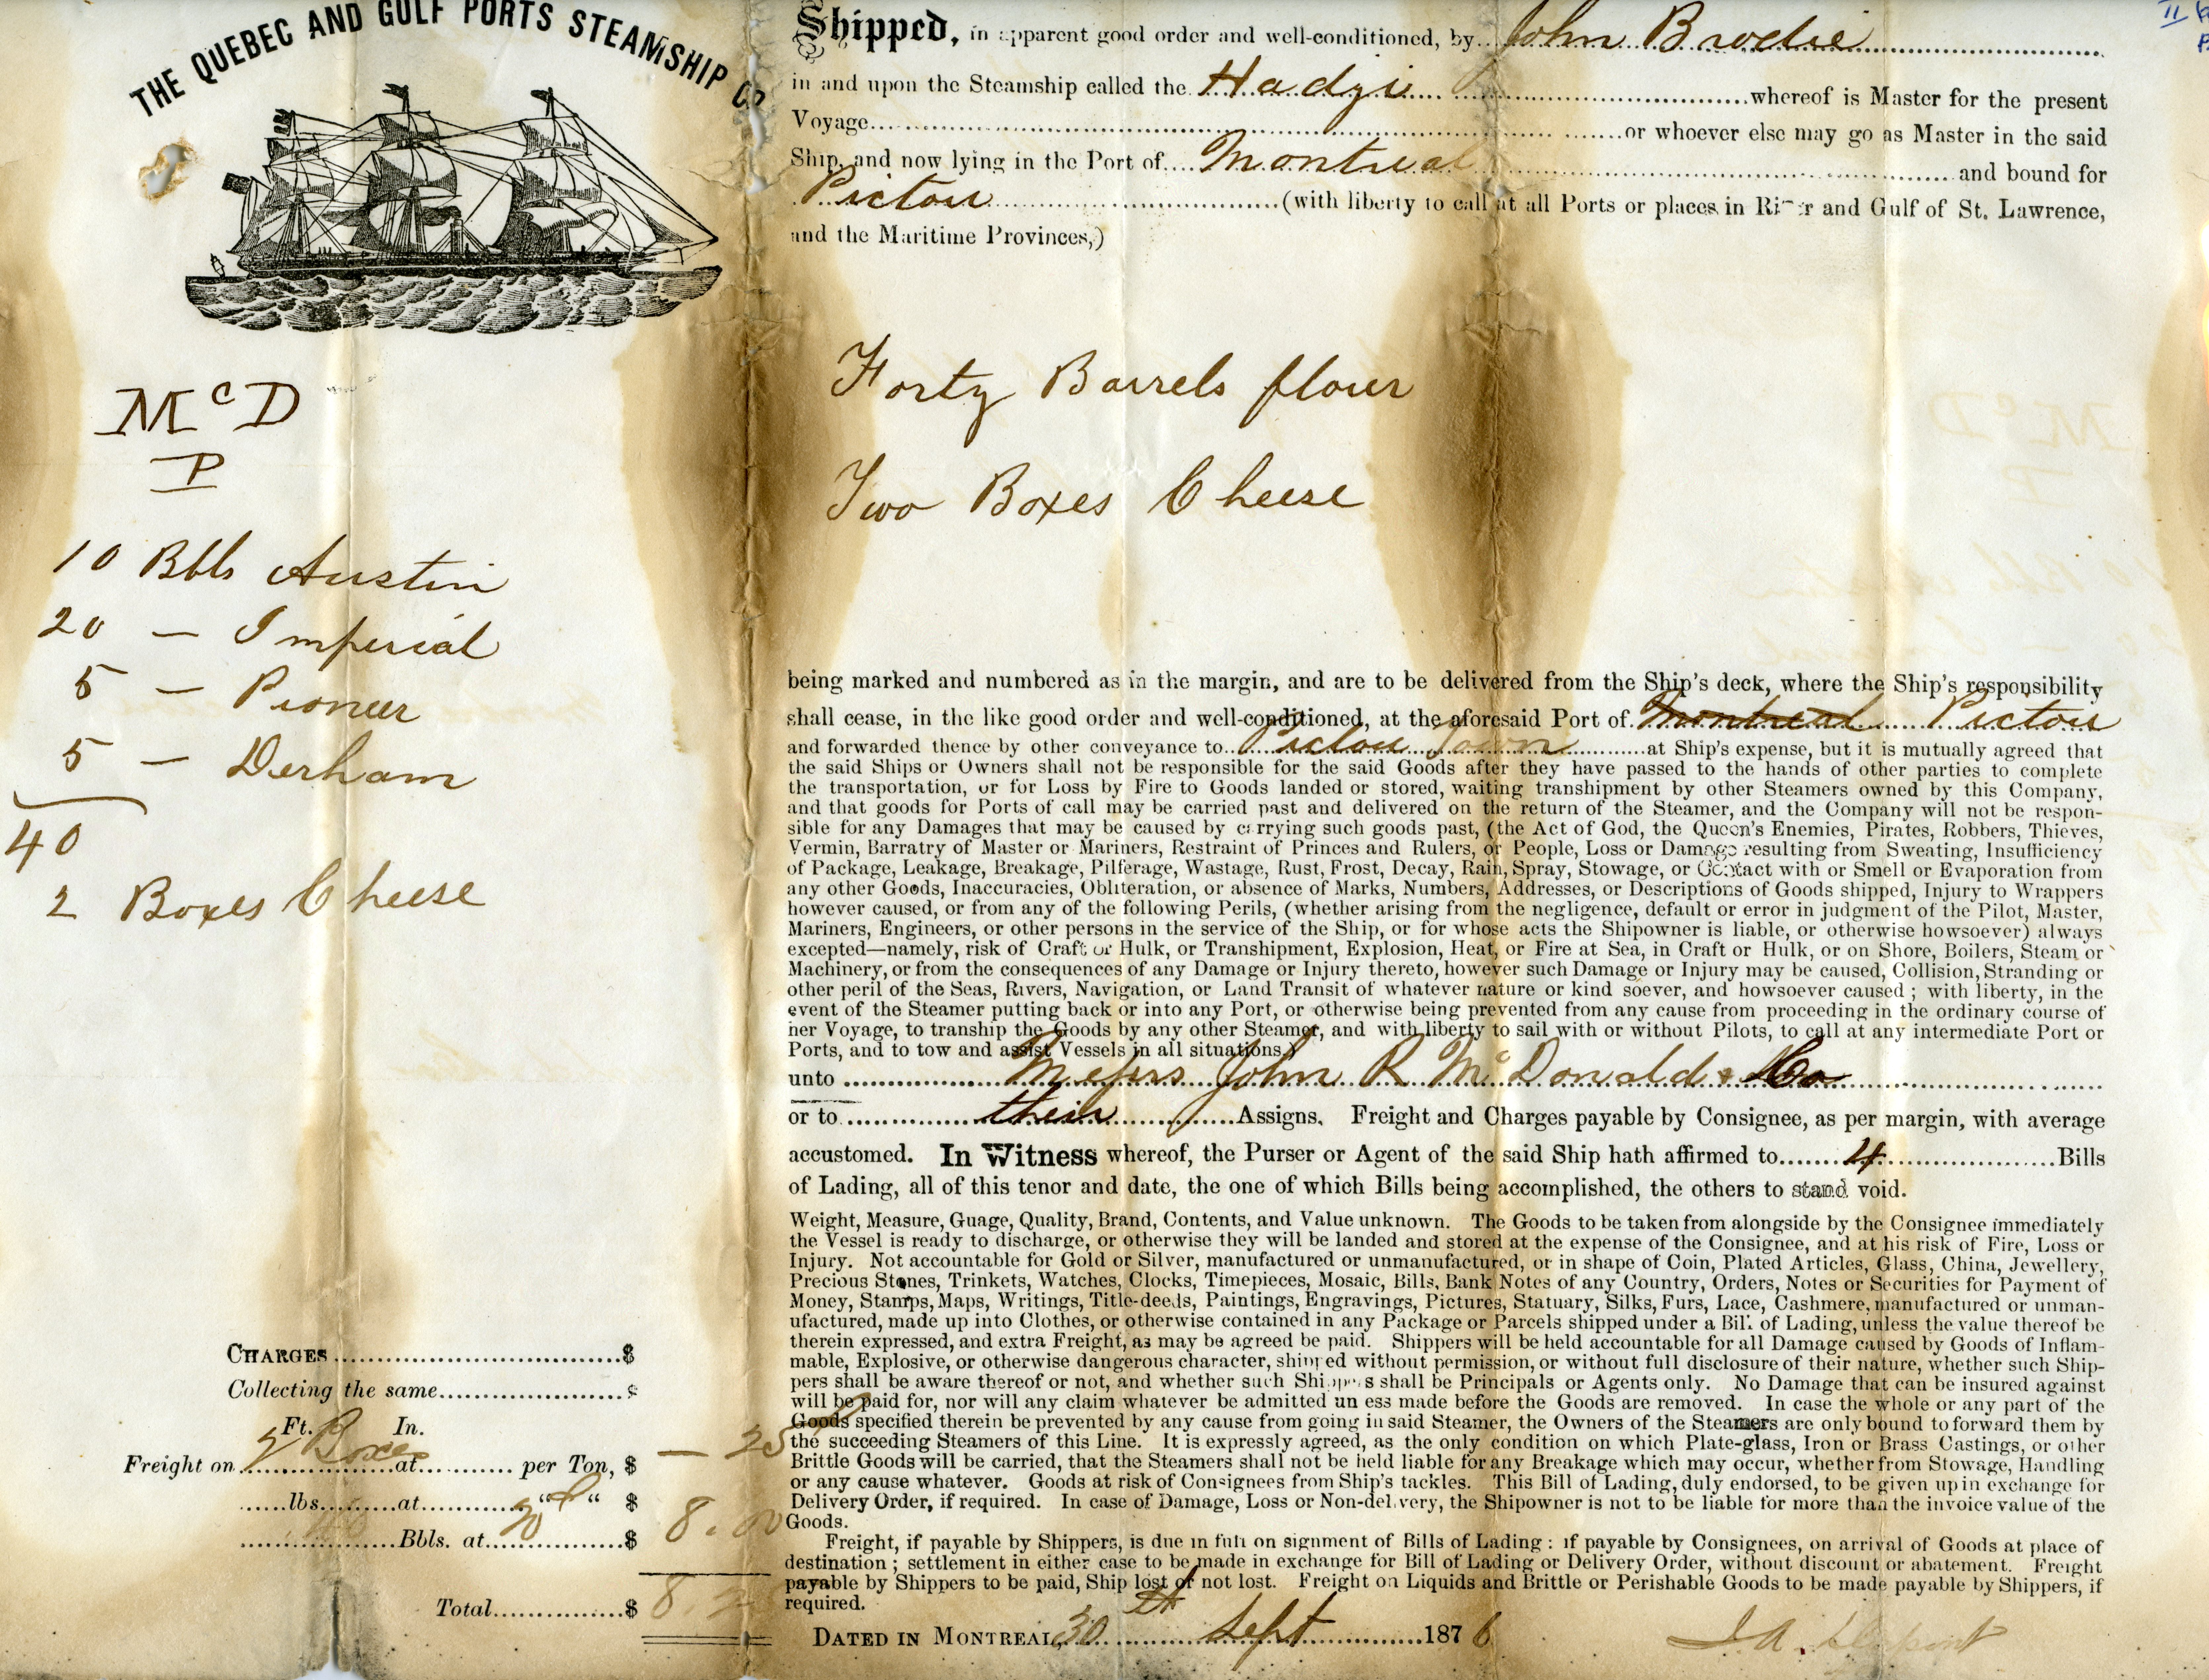 THE QUEBEC AND GULF PORTS STEAMSHIP Co
McD
P
10 Bbls Austin
20 — Imperial
5 — Pioneer
5 — Derham
40
2 Boxes Cheese
CHARGES $
Collecting the same
Ft. In.
2 Boxes
Freight on at per Ton, $ — 25
lbs. at " " $
Bbls. at 20 $ 8.00
Total $ 8.2
Shipped, in apparent good order and well-conditioned, by John Brodie
in and upon the Steamship called the Hadji whereof is Master for the present
Voyage or whoever else may go as Master in the said
Ship, and now lying in the Port of Montreal and bound for
Pictou (with liberty to call at all Ports or places in River and Gulf of St. Lawrence,
and the Maritime Provinces,)
Forty Barrels flour
Two Boxes Cheese
being marked and numbered as in the margin, and are to be delivered from the Ship's deck, where the Ship's responsibility
shall cease, in the like good order and well-conditioned, at the aforesaid Port of Montreal Pictou
and forwarded thence by other conveyance to Pictou Town at Ship's expense, but it is mutually agreed that
the said Ships or Owners shall not be responsible for the said Goods after they have passed to the hands of other parties to complete
the transportation, or for Loss by Fire to Goods landed or stored, waiting transhipment by other Steamers owned by this Company,
and that goods for Ports of call may be carried past and delivered on the return of the Steamer, and the Company will not be respon-
sible for any Damages that may be caused by carrying such goods past, (the Act of God, the Queen's Enemies, Pirates, Robbers, Thieves,
Vermin, Barratry of Master or Mariners, Restraint of Princes and Rulers, or People, Loss or Damage resulting from Sweating, Insufficiency
of Package, Leakage, Breakage, Pilferage, Wastage, Rust, Frost, Decay, Rain, Spray, Stowage, or Contact with or Smell or Evaporation from
any other Goods, Inaccuracies, Obliteration, or absence of Marks, Numbers, Addresses, or Descriptions of Goods shipped, Injury to Wrappers
however caused, or from any of the following Perils, (whether arising from the negligence, default or error in judgment of the Pilot, Master,
Mariners, Engineers, or other persons in the service of the Ship, or for whose acts the Shipowner is liable, or otherwise howsoever) always
excepted—namely, risk of Craft or Hulk, or Transhipment, Explosion, Heat, or Fire at Sea, in Craft or Hulk, or on Shore, Boilers, Steam or
Machinery, or from the consequences of any Damage or Injury thereto, however such Damage or Injury may be caused, Collision, Stranding or
other peril of the Seas, Rivers, Navigation, or Land Transit of whatever nature or kind soever, and howsoever caused ; with liberty, in the
event of the Steamer putting back or into any Port, or otherwise being prevented from any cause from proceeding in the ordinary course of
her Voyage, to tranship the Goods by any other Steamer, and with liberty to sail with or without Pilots, to call at any intermediate Port or
Ports, and to tow and assist Vessels in all situations.)
unto Messrs John R McDonald & Co
or to their Assigns. Freight and Charges payable by Consignee, as per margin, with average
accustomed. In Witness whereof, the Purser or Agent of the said Ship hath affirmed to 4 Bills
of Lading, all of this tenor and date, the one of which Bills being accomplished, the others to stand void.
Weight, Measure, Guage, Quality, Brand, Contents, and Value unknown. The Goods to be taken from alongside by the Consignee immediately
the Vessel is ready to discharge, or otherwise they will be landed and stored at the expense of the Consignee, and at his risk of Fire, Loss or
Injury. Not accountable for Gold or Silver, manufactured or unmanufactured, or in shape of Coin, Plated Articles, Glass, China, Jewellery,
Precious Stones, Trinkets, Watches, Clocks, Timepieces, Mosaic, Bills, Bank Notes of any Country, Orders, Notes or Securities for Payment of
Money, Stamps, Maps, Writings, Title-deeds, Paintings, Engravings, Pictures, Statuary, Silks, Furs, Lace, Cashmere, manufactured or unman-
ufactured, made up into Clothes, or otherwise contained in any Package or Parcels shipped under a Bill of Lading, unless the value thereof be
therein expressed, and extra Freight, as may be agreed be paid. Shippers will be held accountable for all Damage caused by Goods of Inflam-
mable, Explosive, or otherwise dangerous character, shipped without permission, or without full disclosure of their nature, whether such Ship-
pers shall be aware thereof or not, and whether such Shippers shall be Principals or Agents only. No Damage that can be insured against
will be paid for, nor will any claim whatever be admitted un ess made before the Goods are removed. In case the whole or any part of the
Goods specified therein be prevented by any cause from going in said Steamer, the Owners of the Steamers are only bound to forward them by
the succeeding Steamers of this Line. It is expressly agreed, as the only condition on which Plate-glass, Iron or Brass Castings, or other
Brittle Goods will be carried, that the Steamers shall not be held liable for any Breakage which may occur, whether from Stowage, Handling
or any cause whatever. Goods at risk of Consignees from Ship's tackles. This Bill of Lading, duly endorsed, to be given up in exchange for
Delivery Order, if required. In case of Damage, Loss or Non-delivery, the Shipowner is not to be liable for more than the invoice value of the
Goods.
Freight, if payable by Shippers, is due in full on signment of Bills of Lading : if payable by Consignees, on arrival of Goods at place of
destination ; settlement in either case to be made in exchange for Bill of Lading or Delivery Order, without discount or abatement. Freight
payable by Shippers to be paid, Ship lost or not lost. Freight on Liquids and Brittle or Perishable Goods to be made payable by Shippers, if
required.
DATED IN MONTREAL, 30th Sept 1876